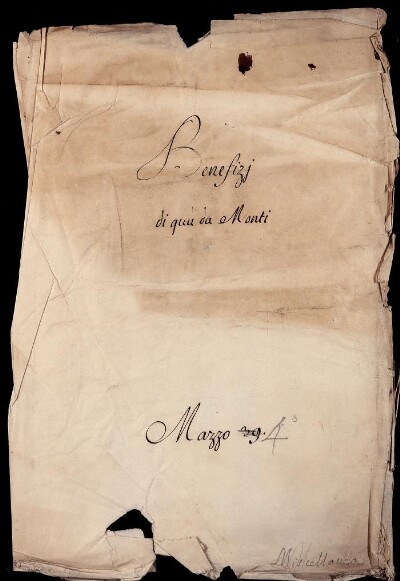 Benefizj
di quà da Monti
Mazzo 39. 4°
Miscellanea